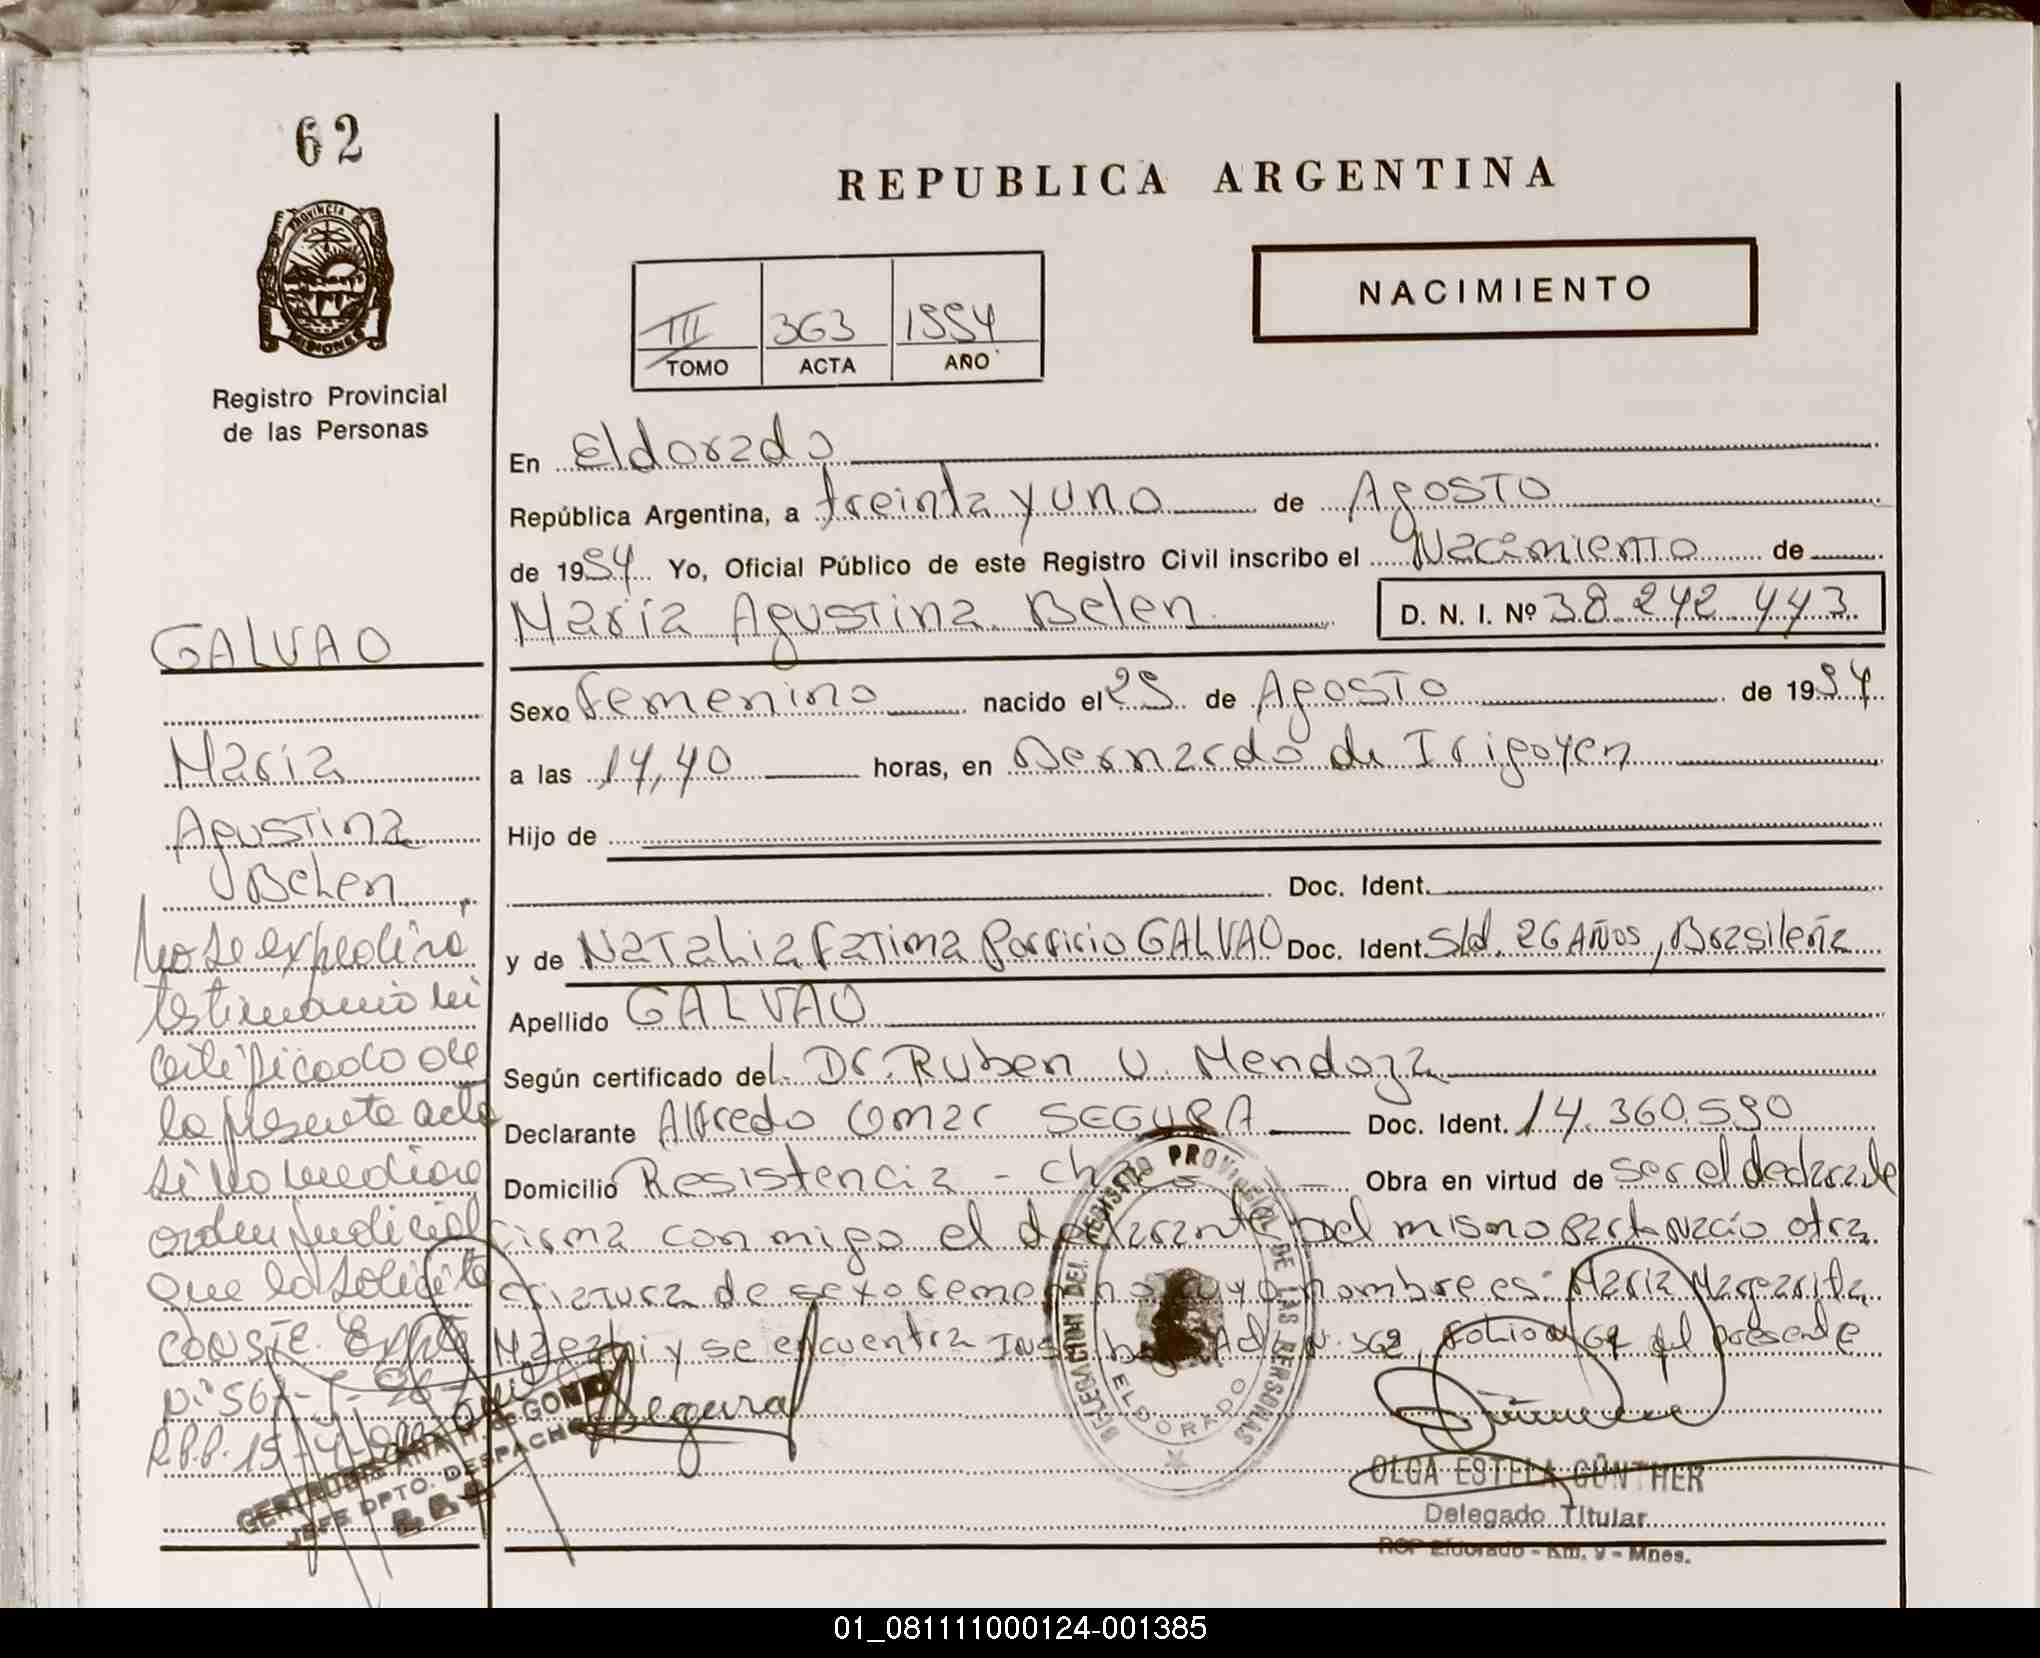 62
PROVINCIA DE
MISIONES
Registro Provincial
de las Personas
REPUBLICA ARGENTINA
NACIMIENTO
III 363 1994
TOMO ACTA AÑO
En Eldorado
República Argentina, a treinta y uno de Agosto
de 1994 Yo, Oficial Público de este Registro Civil inscribo el Nacimiento de
María Agustina Belen D. N. I. Nº 38.242.443
Sexo Femenino nacido el 29 de Agosto de 1994
a las 14,40 horas, en Bernardo de Irigoyen
Hijo de
Doc. Ident.
y de Natalia Fatima Porficio GALVAO Doc. Ident. S/d. 26 AÑOS, Brasileña
Apellido GALVAO
Según certificado del Dr. Ruben U. Mendoza
Declarante Alfredo Omar SEGURA Doc. Ident. 14.360.590
Domicilio Resistencia - Chaco Obra en virtud de ser el declarante
firma conmigo el declarante Del mismo parto nacio otra
criatura de sexo femenino cuyo nombre es: María Margarita
y se encuentra Acta Nº 362, Folio del presente
Segura
DELEGACION DEL REGISTRO PROVINCIAL DE LAS PERSONAS
ELDORADO
OLGA ESTELA GÜNTHER
Delegado Titular
RCP Eldorado - Km. 9 - Mnes.
GALVAO
María
Agustina
Belen
No se expedira
testimonio ni
certificado de
la presente acta
si no media
orden judicial
que lo solicite
CONSTE. Expte
R.P.P. 15-4-
GERTRUDIS ANA H. GOMEZ
JEFE DPTO. DESPACHO
01_081111000124-001385